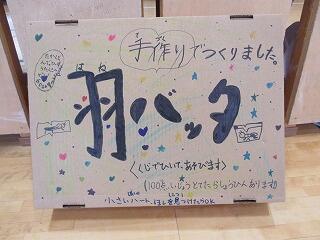 手作りでつくりました。
てづく
はね
羽バッタ
くじでひいて、あそびます
(100点、いじょうとてたらしょうひんあります)
小さいハート、ほしを見つけたらOK